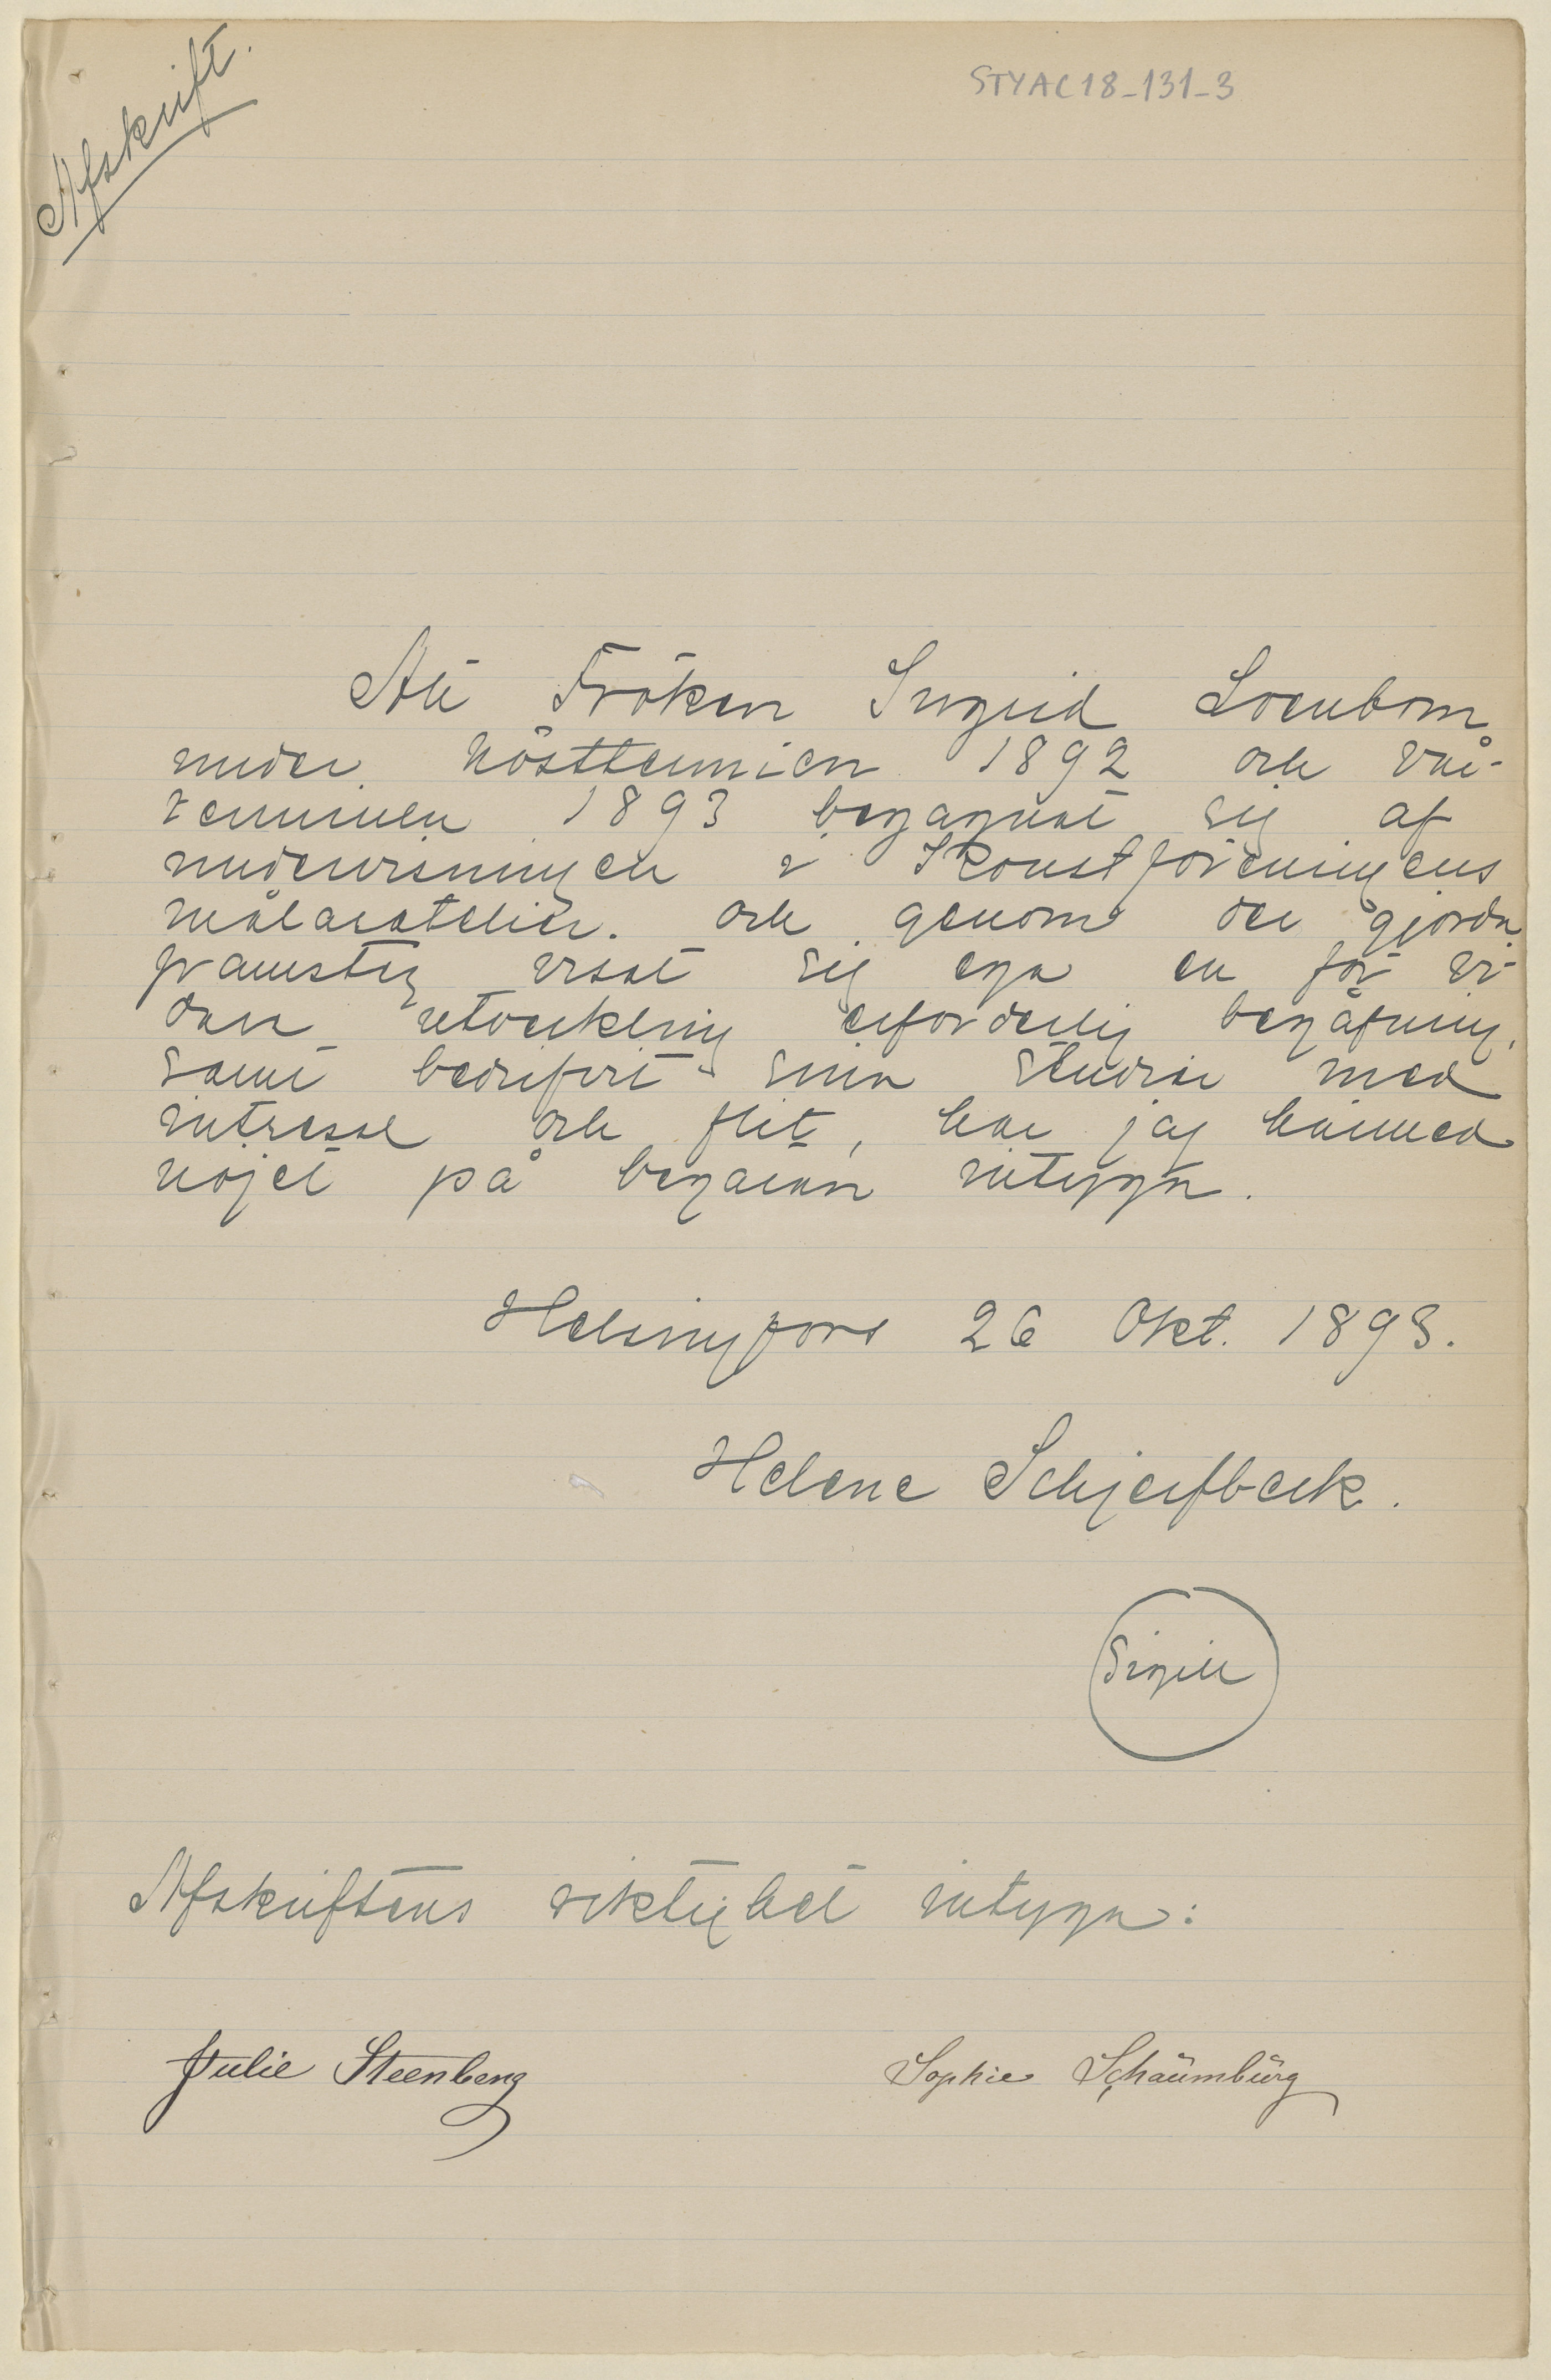 Afskrift.
STYAC18-131-3
Att Fröken Ingrid Loenbom
under höstterminen 1892 och vår-
terminen 1893 begagnat sig af
undervisningen i Konstföreningens
målaratelier. och genom der gjorda
framsteg visat sig ega en för vi-
dare utveckling erforderlig begåfning,
samt bedrifvit sina studier med
intresse och flit, har jag härmed
nöjet på begäran intyga.
Helsingfors 26 Okt. 1893.
Helene Schjerfbeck.
Sigill
Afskriftens riktighet intyga:
Julie Steenberg Sophie Schaŭmbŭrg